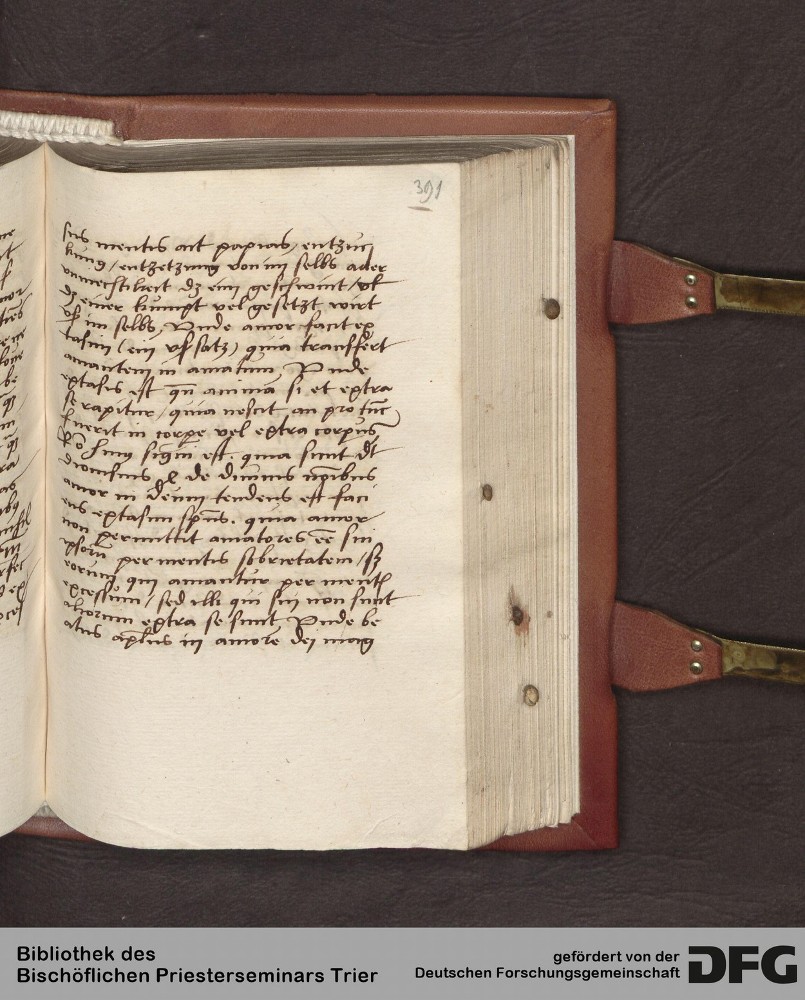 391
sus mentis ait papias, entzuc
kung / entzetzung von im selbs ader
unmechtikeit dz ein geschwint / ul
dz einer kumpt vel gesetzt wirt
uf im selbs, Unde amor facit ex
tasim (ein ufsatz) quia transfert
amantem in amatum, Unde
extasis est qn anima si et extra
se rapitur, quia nescit an pro tunc
fuerit in corpe vel extra corpus
signm est. quia sicut dt
dionisius de divinis nominibus
amor in deum tendens est faci
ens extasim spns. quia amor
non permittit amatores ee sui
ipsorum per mentis sobrietatem / sz
eorum qui amantur per mentis
excessum / sed illi qui sui non sunt
aliorum extra se sunt, Unde be
atus aplus in amore dei mag
Bibliothek des
Bischöflichen Priesterseminars Trier
gefördert von der
Deutschen Forschungsgemeinschaft
DFG